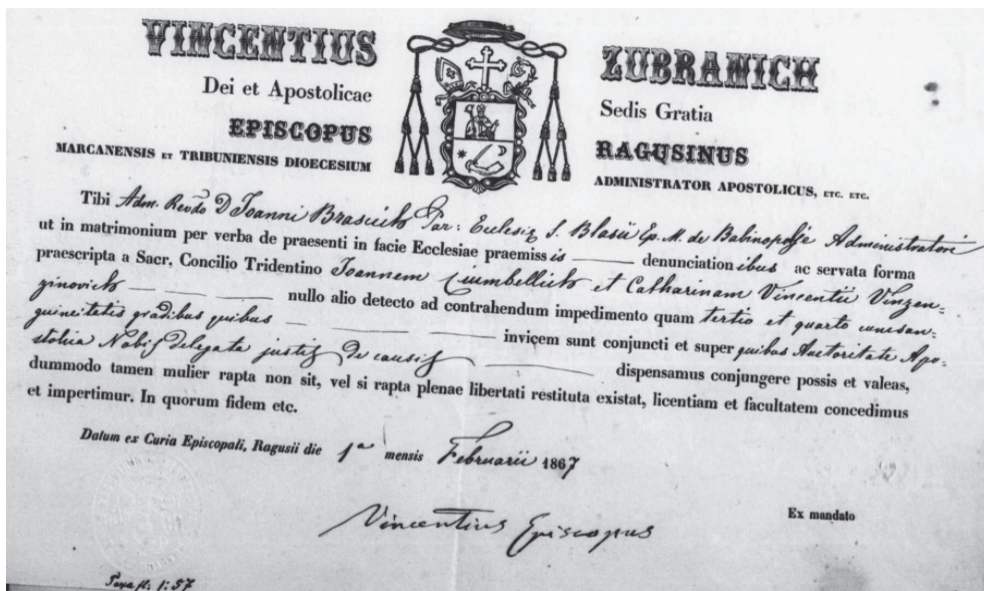 VINCENTIUS ZUBRANICH
Dei et Apostolicae Sedis Gratia
EPISCOPUS RAGUSINUS
MARCANENSIS ET TRIBUNIENSIS DIOECESIUM ADMINISTRATOR APOSTOLICUS, ETC. ETC.
Tibi Adm. Revdo D Joanni Brascich Par: Ecclesiæ S. Blasii Ep. M. de Babinopolje Administratori
ut in matrimonium per verba de praesenti in facie Ecclesiae praemissis denunciationibus ac servata forma
praescripta a Sacr. Concilio Tridentino Joannem Ciumbellich et Catharinam Vincentii Vinzen=
ginovich nullo alio detecto ad contrahendum impedimento quam tertio et quarto consan=
guineitatis gradibus quibus inviçem sunt conjuncti et super quibus Auctoritate Apo=
stolica Nobis delegata justis de causis dispensamus conjungere possis et valeas,
dummodo tamen mulier rapta non sit, vel si rapta plenae libertati restituta existat, licentiam et facultatem concedimus
et impertimur. In quorum fidem etc.
Datum ex Curia Episcopali, Ragusii die 1a mensis Februarii 1867
Vincentius Episcopus
Ex mandato
Taxa fl. 1:57